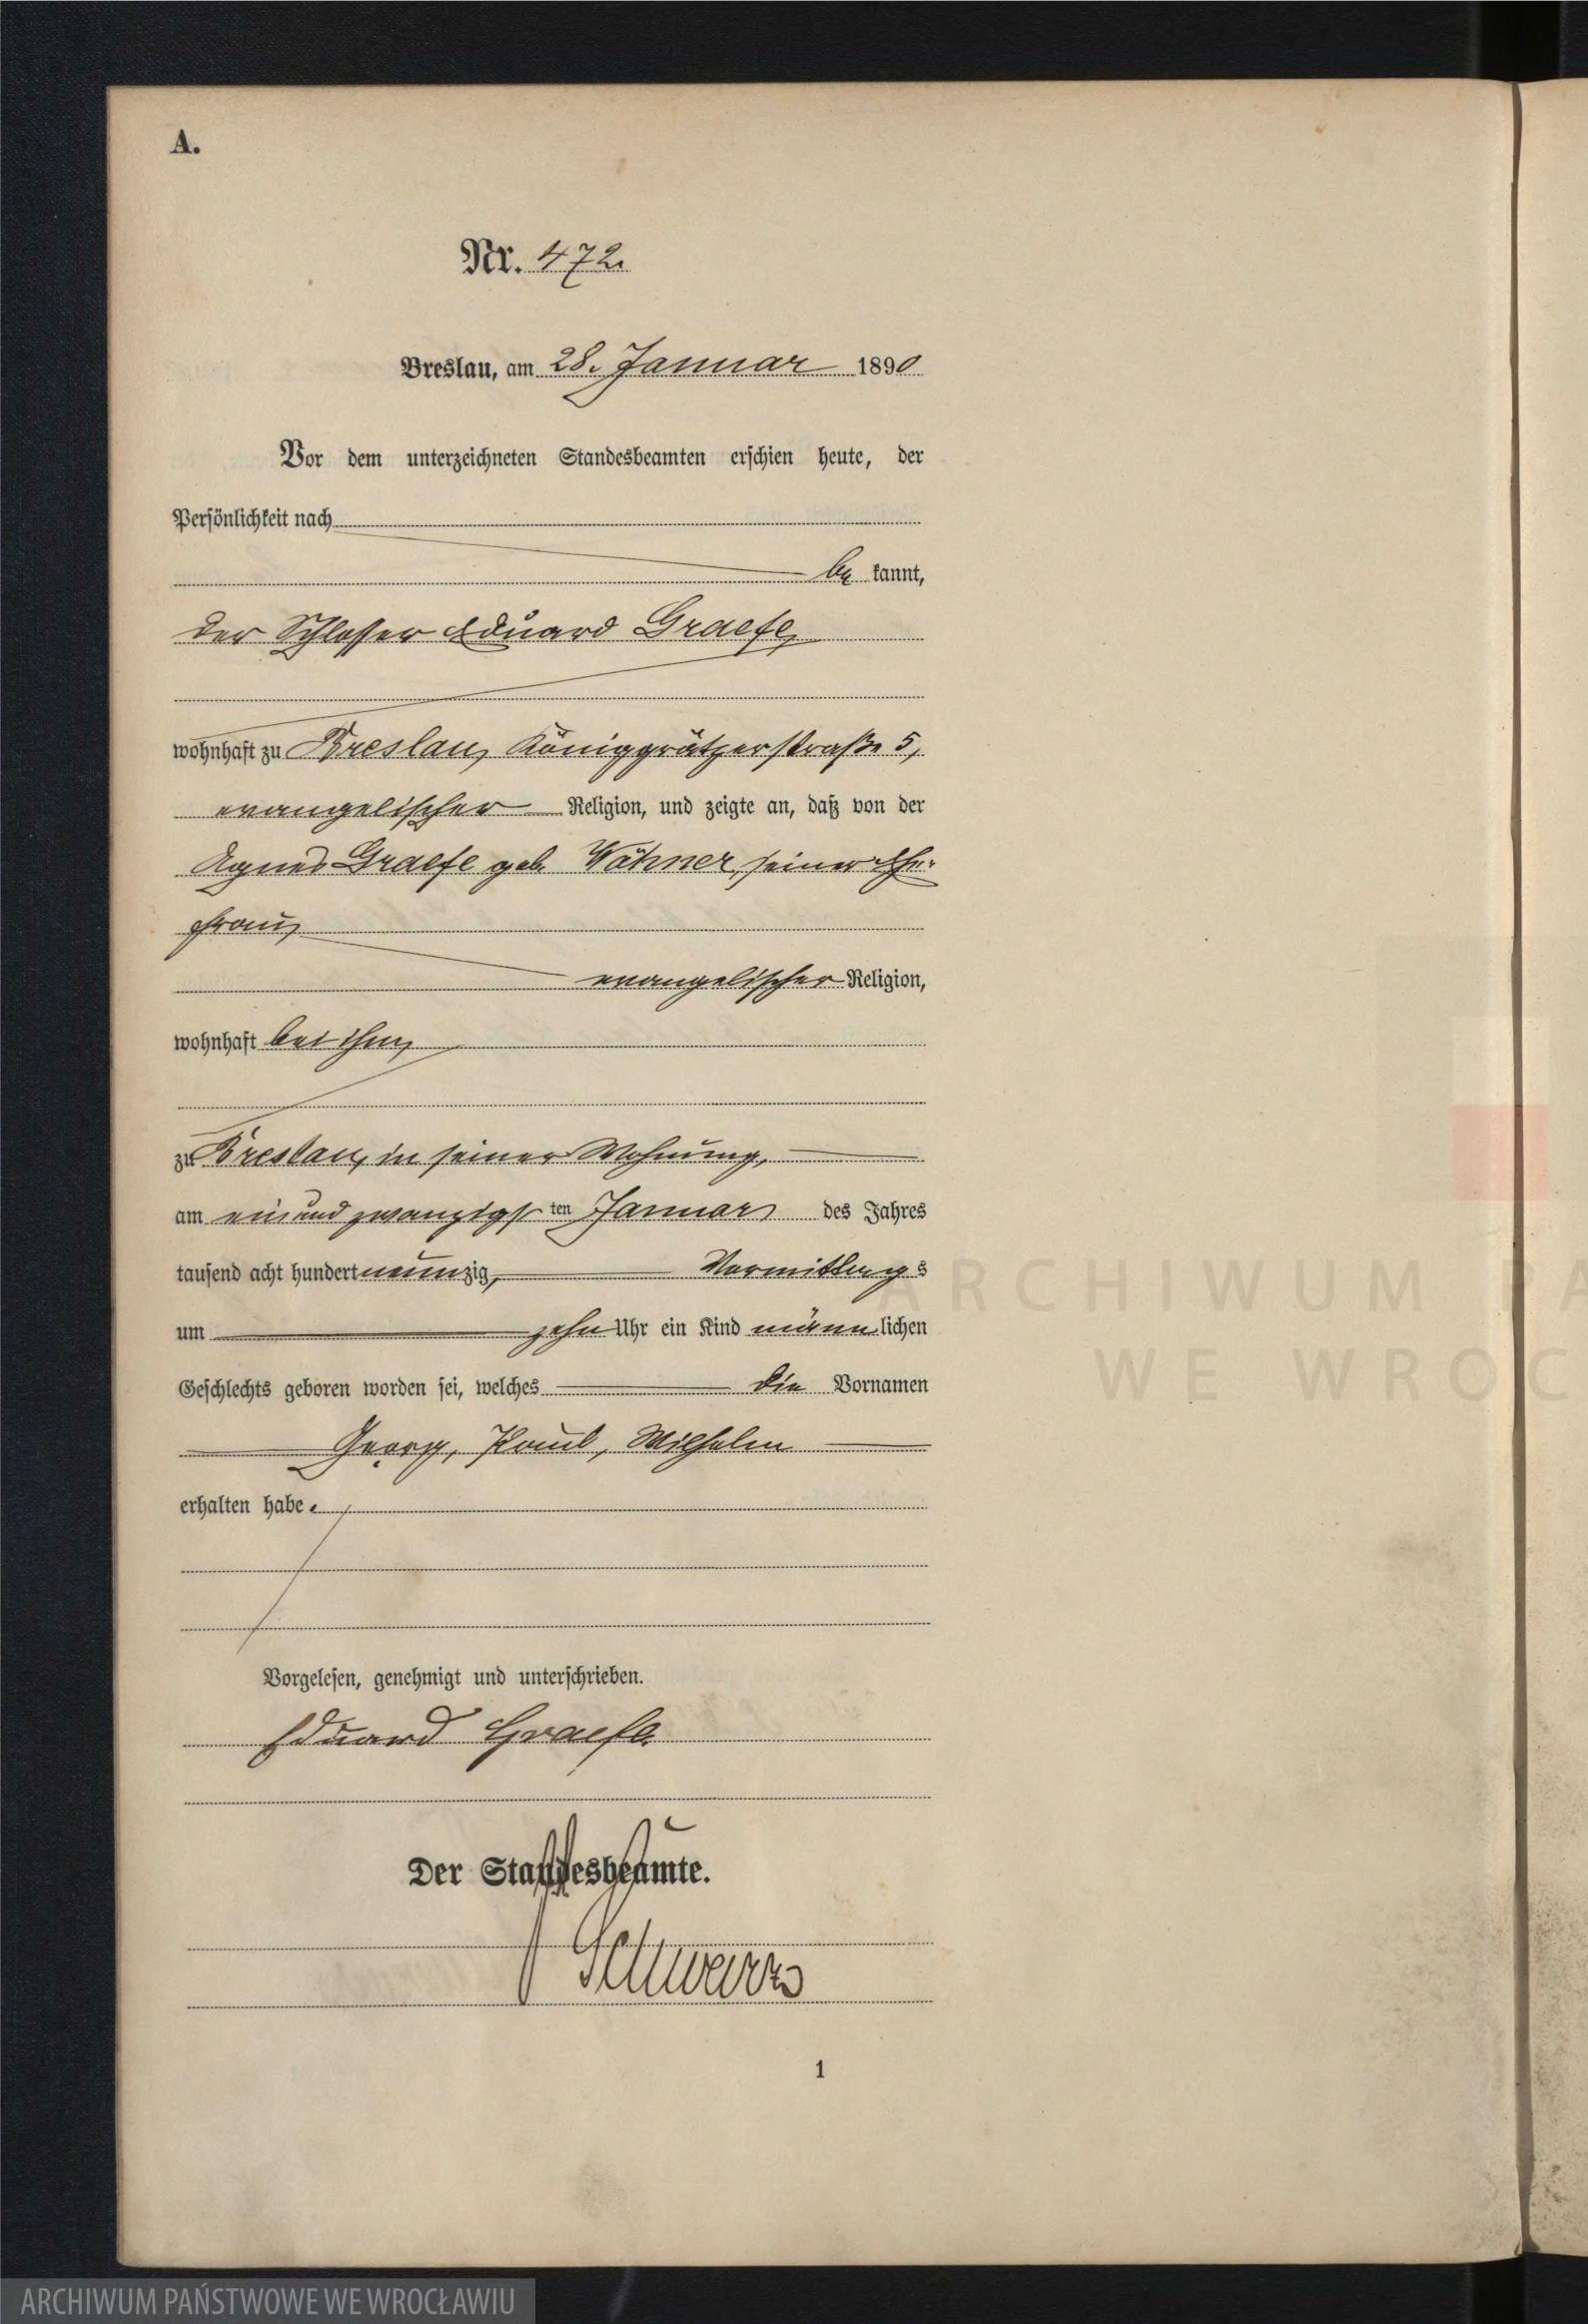 A.
Nr. 472.
Breslau, am 28. Januar 1890
Vor dem unterzeichneten Standesbeamten erschien heute, der
Persönlichkeit nach
be kannt,
der Schlosser Eduard Graefe,
wohnhaft zu Breslau, Königgrätzerstraße 5,
evangelischer Religion, und zeigte an, daß von der
Agnes Graefe geb. Wöhner, seiner Ehe-
frau,
evangelischer Religion,
wohnhaft bei ihm,
zu Breslau, in seiner Wohnung,
am einundzwanzigsten Januar des Jahres
tausend acht hundert neunzig, Vormittags
um zehn Uhr ein Kind männlichen
Geschlechts geboren worden sei, welches die Vornamen
Georg, Paul, Wilhelm
erhalten habe.
Vorgelesen, genehmigt und unterschrieben.
Eduard Graefe.
Der Standesbeamte.
Schwarz
1
ARCHIWUM PA
WE WROC
ARCHIWUM PAŃSTWOWE WE WROCŁAWIU